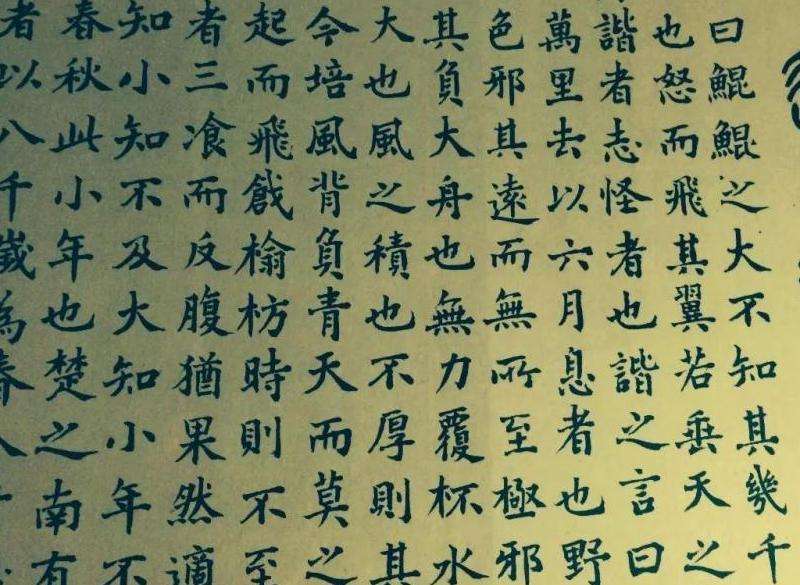 曰鯤鯤之大不知其幾千
也怒而飛其翼若垂天之
諧者志怪者也諧之言曰
萬里去以六月息者也野
色邪其遠而無所至極邪
其負大舟也無力覆杯水
大也風之積也不厚則其
今培風背負青天而莫之
起而飛戧榆枋時則不至
者三飡而反腹猶果然適
知小知不及大知小年不
春秋此小年也楚之南有
者以八千歲為春